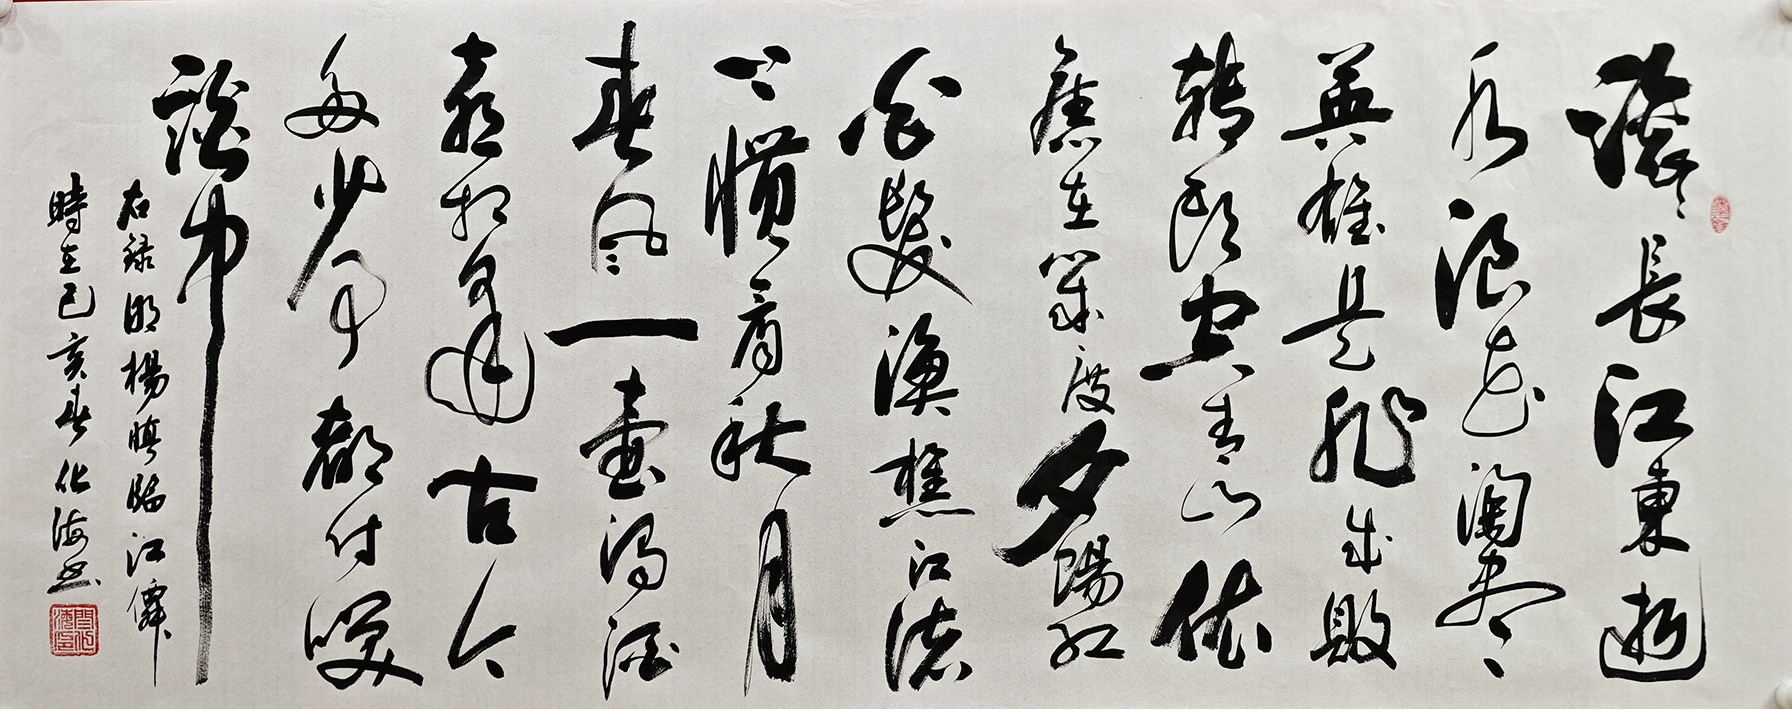 滚滚長江東逝
水浪花淘尽
英雄是非成敗
轉頭空青山依
舊在几度夕陽红
白髮漁樵江渚
上慣看秋月
春风一壶濁酒
喜相逢古今
多少事都付笑
談中
右録明楊慎臨江仙
時在己亥春化海书